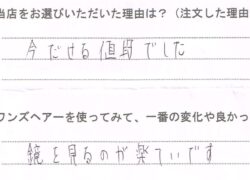 当店をお選びいただいた理由は？（注文した理由
今だせる値段でした
ワンズヘアーを使ってみて、一番の変化や良かっ
鏡を見るのが楽しいです